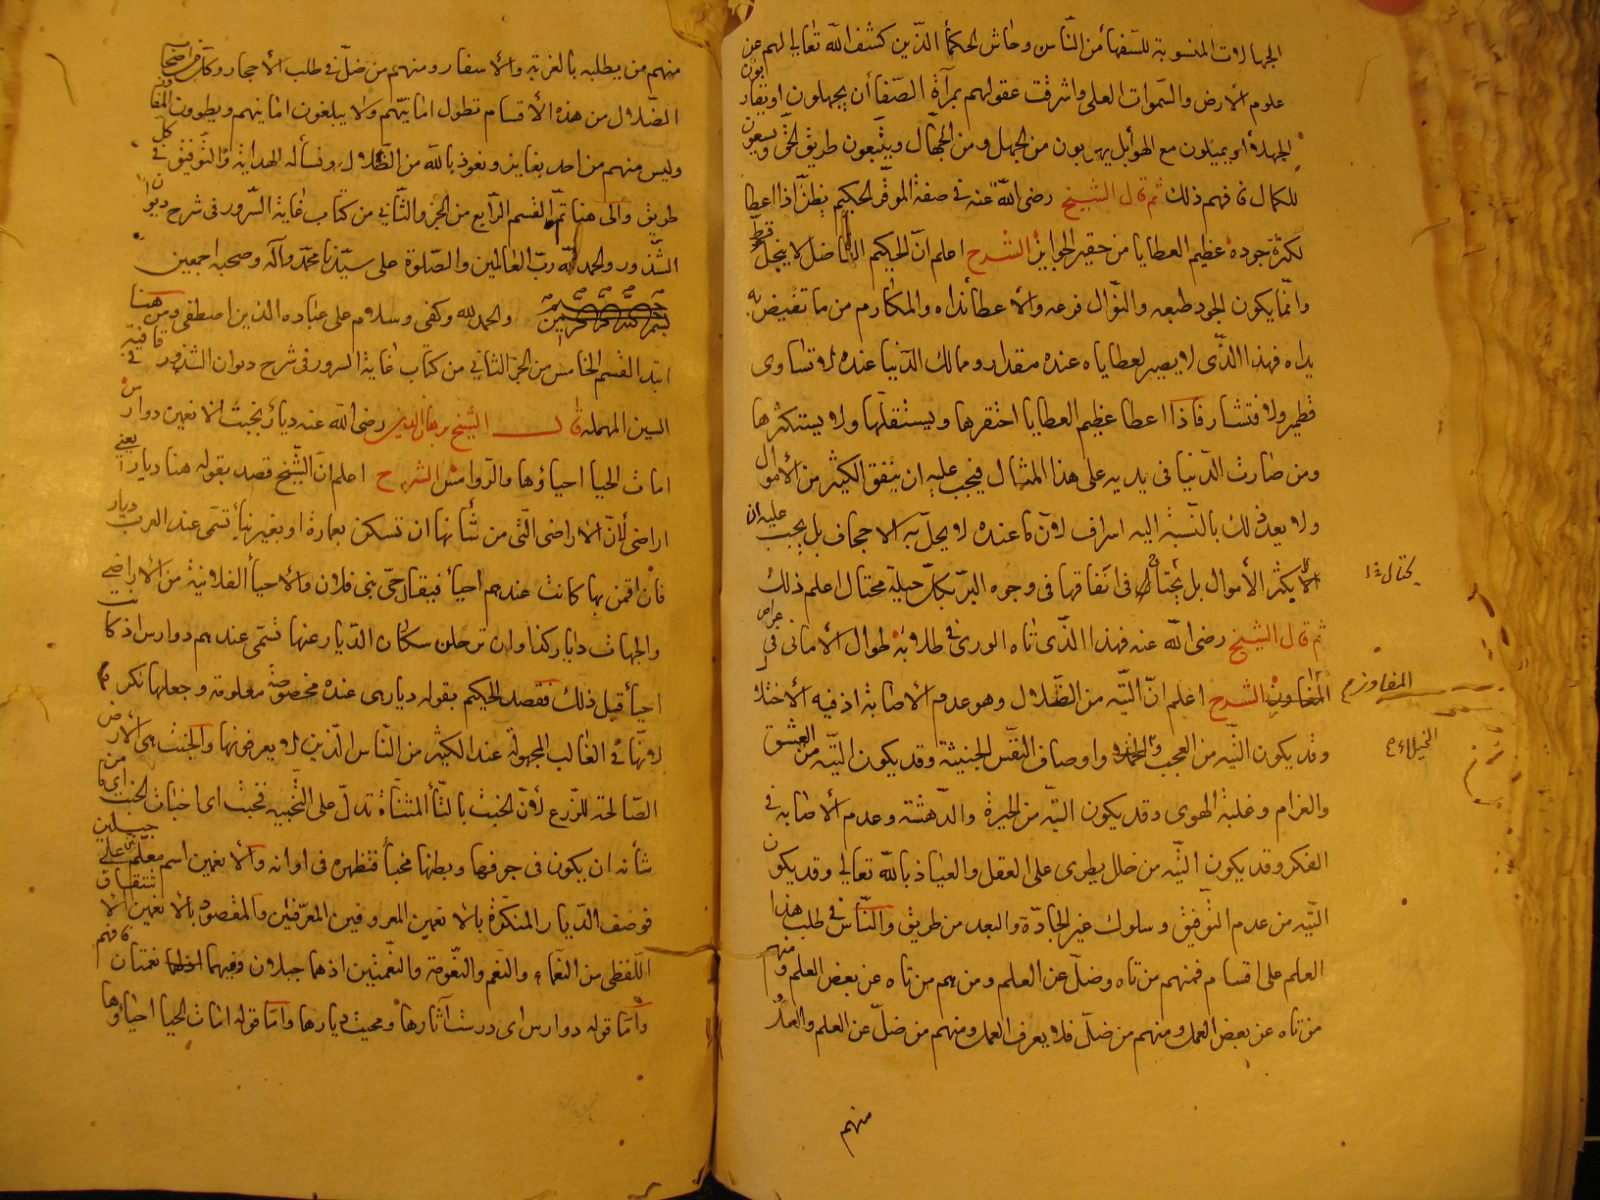 الجهالات المنسوبة للسفهاء من الناس وحاش الحكماء الذين كشف الله تعالى لهم عن
علوم الارض والسموات العلى واشرقت عقولهم بمرآة الصفا أن يجهلون او يقاربون
الجهلة او يميلون مع الهوى بل يهربون من الجهل ومن الجهال ويتبعون طريق الحق ويسعون
للكمال فافهم ذلك ثم قال الشيخ رضى الله عنه فى صفة الموقر الحكيم يظن اذا اعطا
لكثرة جوده عظيم العطايا من حقير الجوايز الشرح اعلم ان الحكيم الفاضل لا يبخل قط
وانما يكون الجود طبعه والنوال فرعه والاعطا نداه والمكارم من ما تفيض به
يداه فهذا الذى لا يصير لعطاياه عنده مقدار وممالك الدنيا عنده لا تساوى
قطمير ولا فتشار فاذا اعطا عظيم العطايا احتقرها ويستقلها ولا يستكثرها
ومن صارت الدنيا فى يديه على هذا المثال فيجب عليه ان ينفق الكثير من الأموال
ولا يعد ذلك بالنسبة اليه اسراف لان ما عنده لا يحل به الاجحاف بل يجب عليه ان
لا يكثر الأموال بل يحتال فى انفاقها فى وجوه البر بكل حيلة محتال اعلم ذلك
يحتال
ثم قال الشيخ رضى الله عنه فهذا الذى تاه الورى فى طلابه طوال الامانى فى
المفاوز الشرح اعلم ان التيه من الضلال وهو عدم الاصابة اذ فيه الاختلال
المفاوز م
وقد يكون التيه من العجب واوصاف النفس الخبيثة وقد يكون التيه من العشق
الخيلاء م
والغرام وغلبة الهوى وقد يكون التيه من الحيرة والدهشة وعدم الاصابه فى
الفكر وقد يكون التيه من خلل يطرى على العقل والعياذ بالله تعالى وقد يكون
التيه من عدم التوفيق وسلوك غير الجادة والبعد من طريق والناس فى طلب هذا
العلم على اقسام فمنهم من تاه وضل عن العلم ومن هم من تاه عن بعض العلم ومنهم
من تاه عن بعض العمل ومنهم من ضل فلا يعرف العمل ومنهم من ضل عن العلم والعمل و
منهم
منهم من يطلبه بالغربة والاسفار ومنهم من ضل فى طلب الاحجار وكان اصحاب
الضلال من هذه الأقسام تطول امانيهم ولا يبلغون امانيهم ويطوون المفاوز
وليس منهم من احد بفايز ونعوذ بالله من الضلال ونسأله الهداية والتوفيق فى كل
طريق والى هنا تم القسم الرابع من الجزء الثانى من كتاب غاية السرور فى شرح ديوان
الشذور والحمد لله رب العالمين والصلوة على سيدنا محمد وآله وصحبه اجمعين
بسم الله الرحمن الرحيم والحمد لله وكفى وسلام على عباده الذين اصطفى ومن هنا
ابتدا القسم الخامس من الجزء الثانى من كتاب غاية السرور فى شرح ديوان الشذور فى قافية
السين المهملة قال الشيخ برهان الدين رضى الله عنه ديار بخبت الانعمين دوارس
امات الحيا احياؤها والروامس الشرح اعلم ان الشيخ قصد بقوله هنا ديار يعنى
اراضى لأن الاراضى التى من شأنها ان تسكن بعمارة او بغير بناء تسمى عند العرب ديار
فان اقمن بها كانت عندهم احياء فيقال حى بنى فلان والاحياء الفلانية من الاراضى
والجهات ديار كذا وان ترحلن سكان الديار عنها تسمى عندهم دوارس اذ كانت
احياء قبل ذلك فقصد الحكيم بقوله ديار هى عنده مخصوصة معلومة وجعلها نكرة
لانها فى الغالب المجهولة عند الكثير من الناس الذين لا يعرفونها والخبت هى الارض
الصالحة للزرع لأن الخبت بالتاء المثناة تدل على التخبيه فخبت اى اخبات الخبت اى ما من
شأنه ان يكون فى جوفها وبطنها مخبأ فتظهره فى اوانه والانعمين اسم معلم على جبلين
فوصف الديار المنكرة بالانعمين المعروفين المعرفين والمقصود بالانعمين الاشتقاق
اللفظى من النعماء والنعم والنعومة والنعمتين اذ هما جبلان وفيهما نعمتان فافهم
واما قوله دوارس اى درست آثارها ومحيت ديارها واما قوله امات الحيا احياؤها